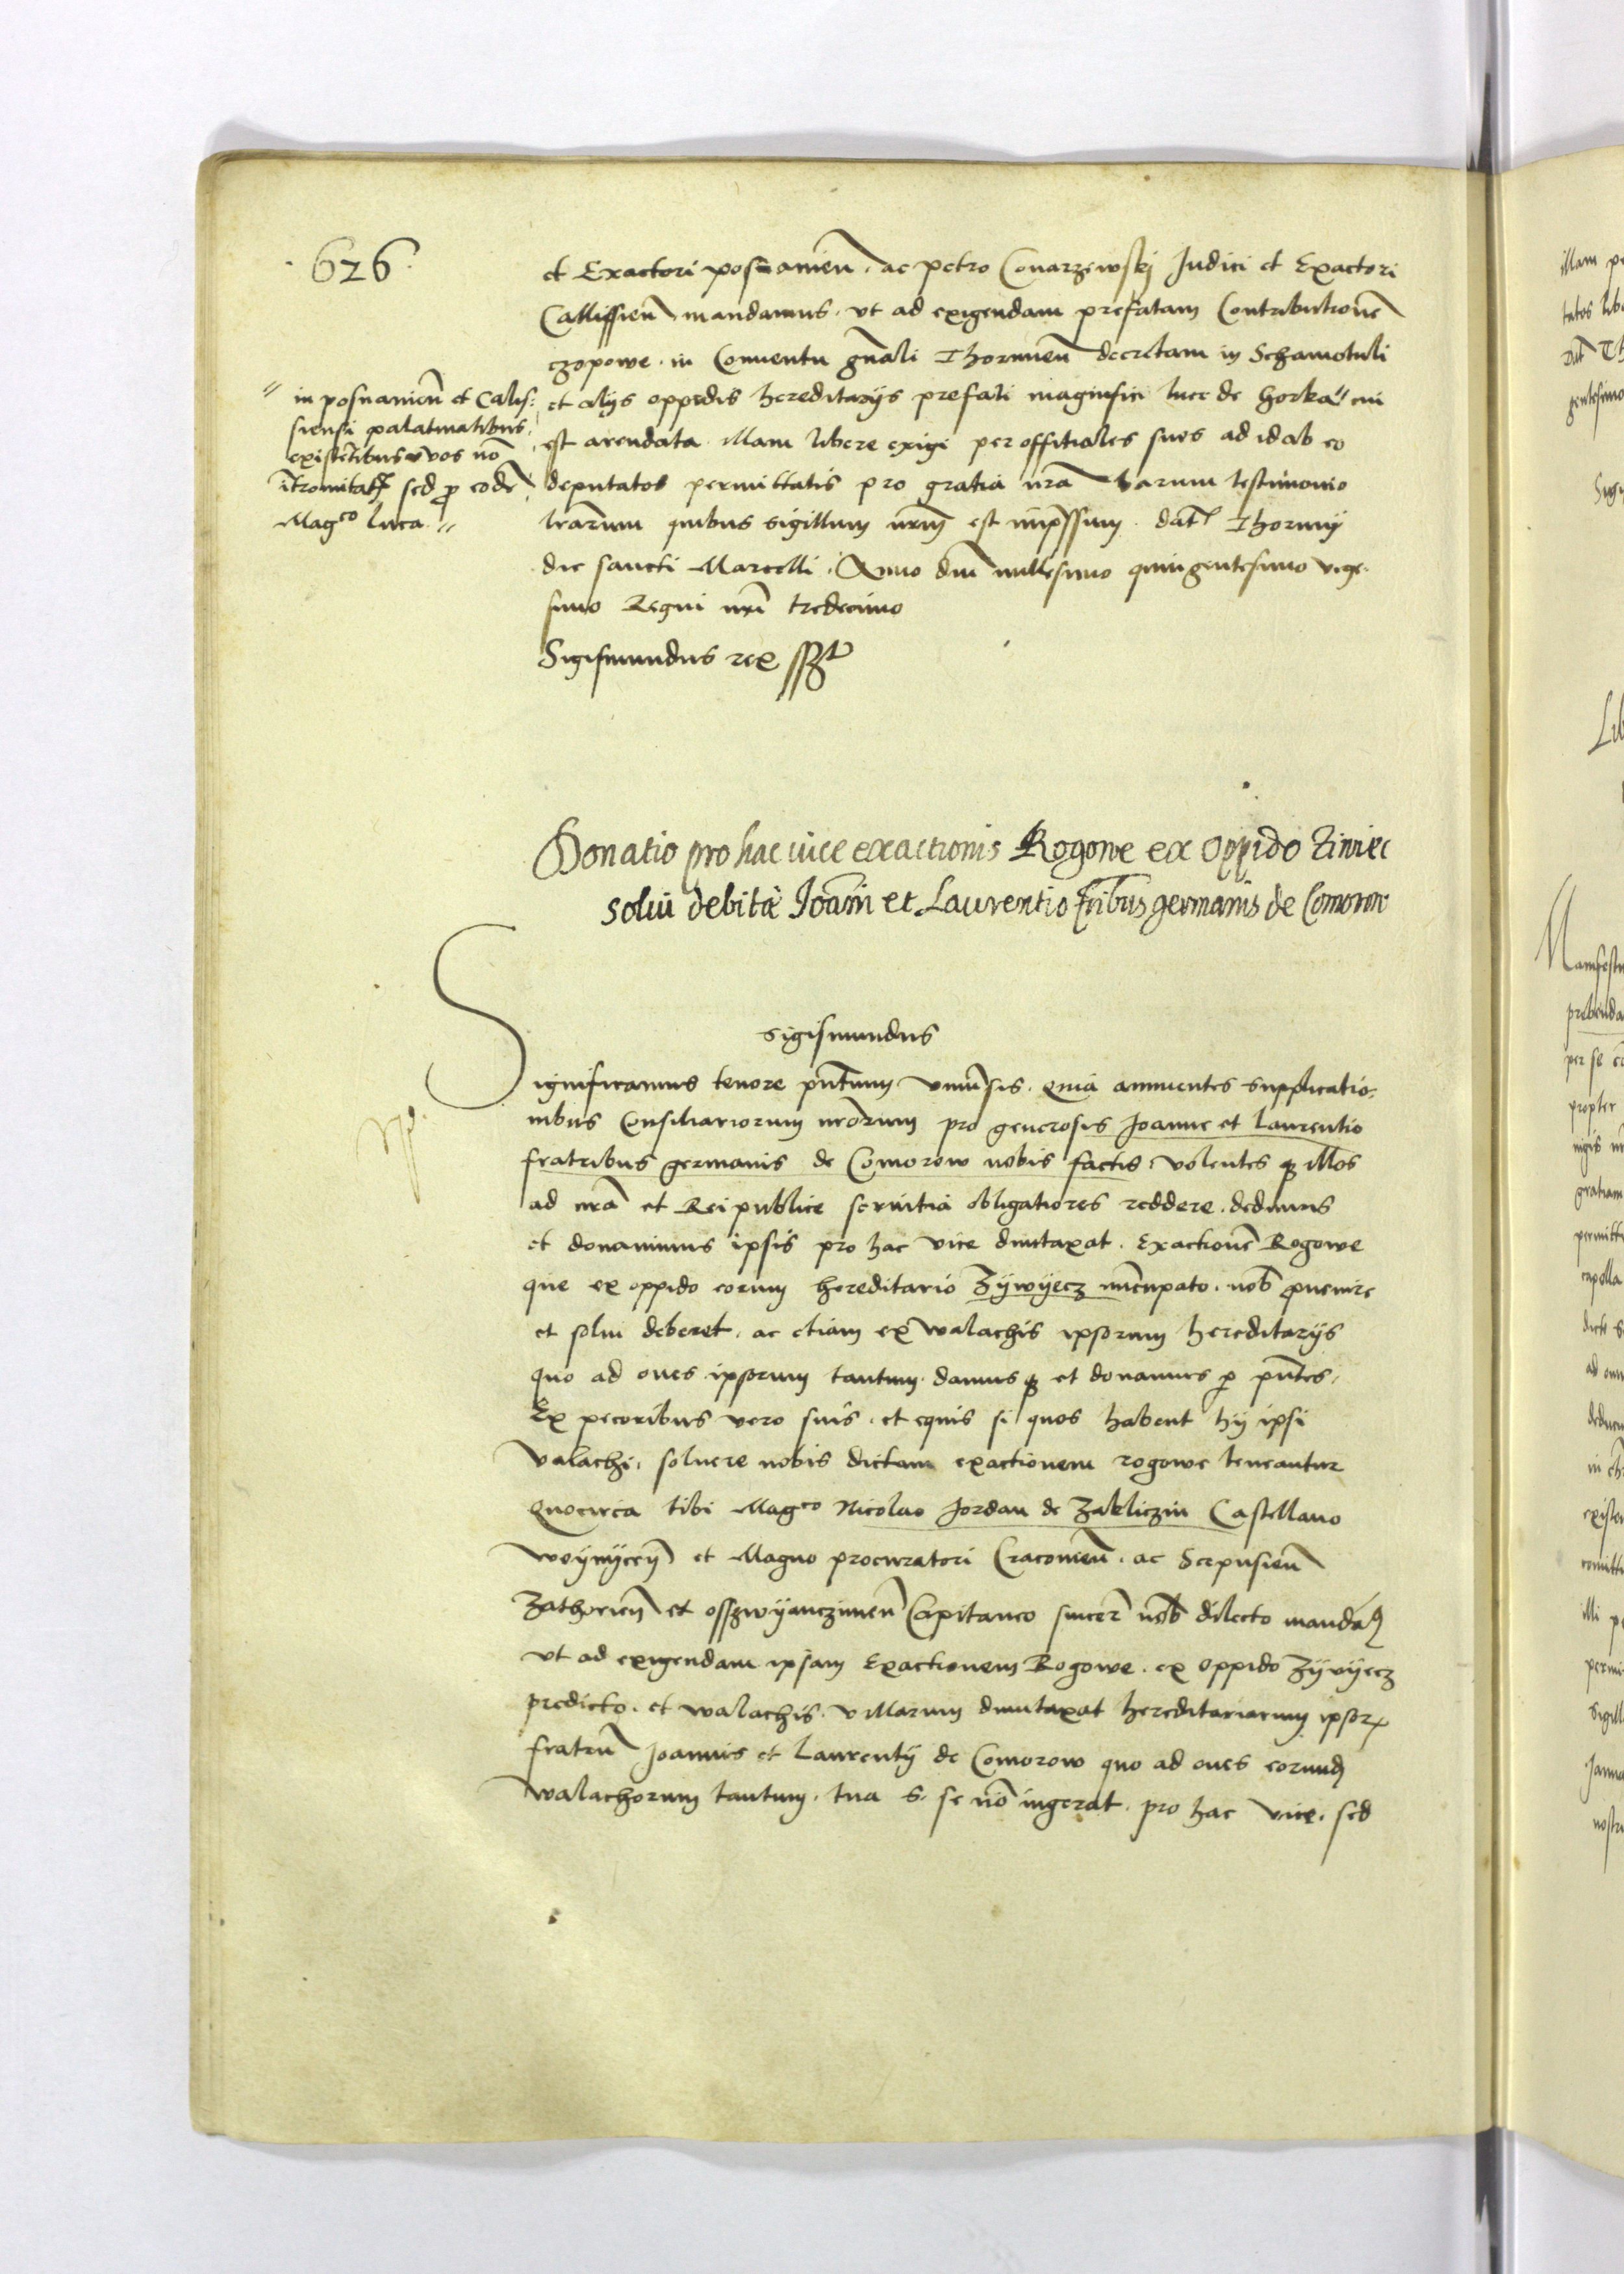 626
et Exactori posnanien̄. ac petro Conarzewskj Judici et Exactori
Callissien̄ mandamus. vt ad exigendam prefatam Contributionē
czopowe. in Conuentu gn̄ali Thorunien̄ decretam in Schamotuli
et alijs oppidis hereditarijs prefati magnifici luce de Gorka" cui
est arendata. illam libere exigi per offitiales suos ad id ab eo
deputatos permittatis pro gratia nr̄a harum testimonio
lrārum quibus sigillum nrm̄ est impr̄ssum. dat̄ Thorunij
die sancti Marcelli. Anno dnī millesimo quingentesimo vige-
simo Regni nrī tredecimo
Sigismundus rex sszt
" in posnanien̄ et Calis-
siensi palatinatibus
existētibus vos nō
ītromitat sed ꝓ eodē
Mag^co luca "
Donatio pro hac vice exactionis Rogowe ex oppido Ziviec
solui debitæ Joāni et Laurentio fribus germanis de Comorow
Sigismundus
Significamus tenore pn̄tium vniūsis. Quia annuentes supplicatio-
nibus Consiliariorum nrōrum pro generosis Joanne et Laurentio
fratribus germanis de Comorow nobis factis. volentes qꝫ illos
ad nrā et Rei publice seruitia obligatiores reddere. dedimus
et donauimus ipsis pro hac vice dumtaxat. Exactionē Rogowe
que ex oppido eorum hereditario Zywyecz nūcupato. nob̄ ꝓuenire
et solui deberet. ac etiam ex walachis ipsorum hereditarijs
quo ad oues ipsorum tantum. damus qꝫ et donamus ꝑ pn̄tes.
Ex pecoribus vero suis. et equis si quos habent hij ipsi
Valachi. soluere nobis dictam exactionem rogowe teneantur
Quocirca tibi Mag^co Nicolao Jordan de Zakliczin Castellano
woynycen̄ et Magno procuratori Cracouien̄. ac Scepusien̄
Zathorien̄ et osszwyanczimen̄ Capitaneo sincer̄ nob̄ dilecto mandam9
vt ad exigendam ipsam Exactionem Rogowe. ex oppido Zywyecz
predicto. et walachis. villarum dumtaxat hereditariarum ipsorꝝ
fratrū Joannis et Laurentij de Comorow quo ad oues eorund
walachorum tantum. tua S. se nō ingerat. pro hac vice. sed